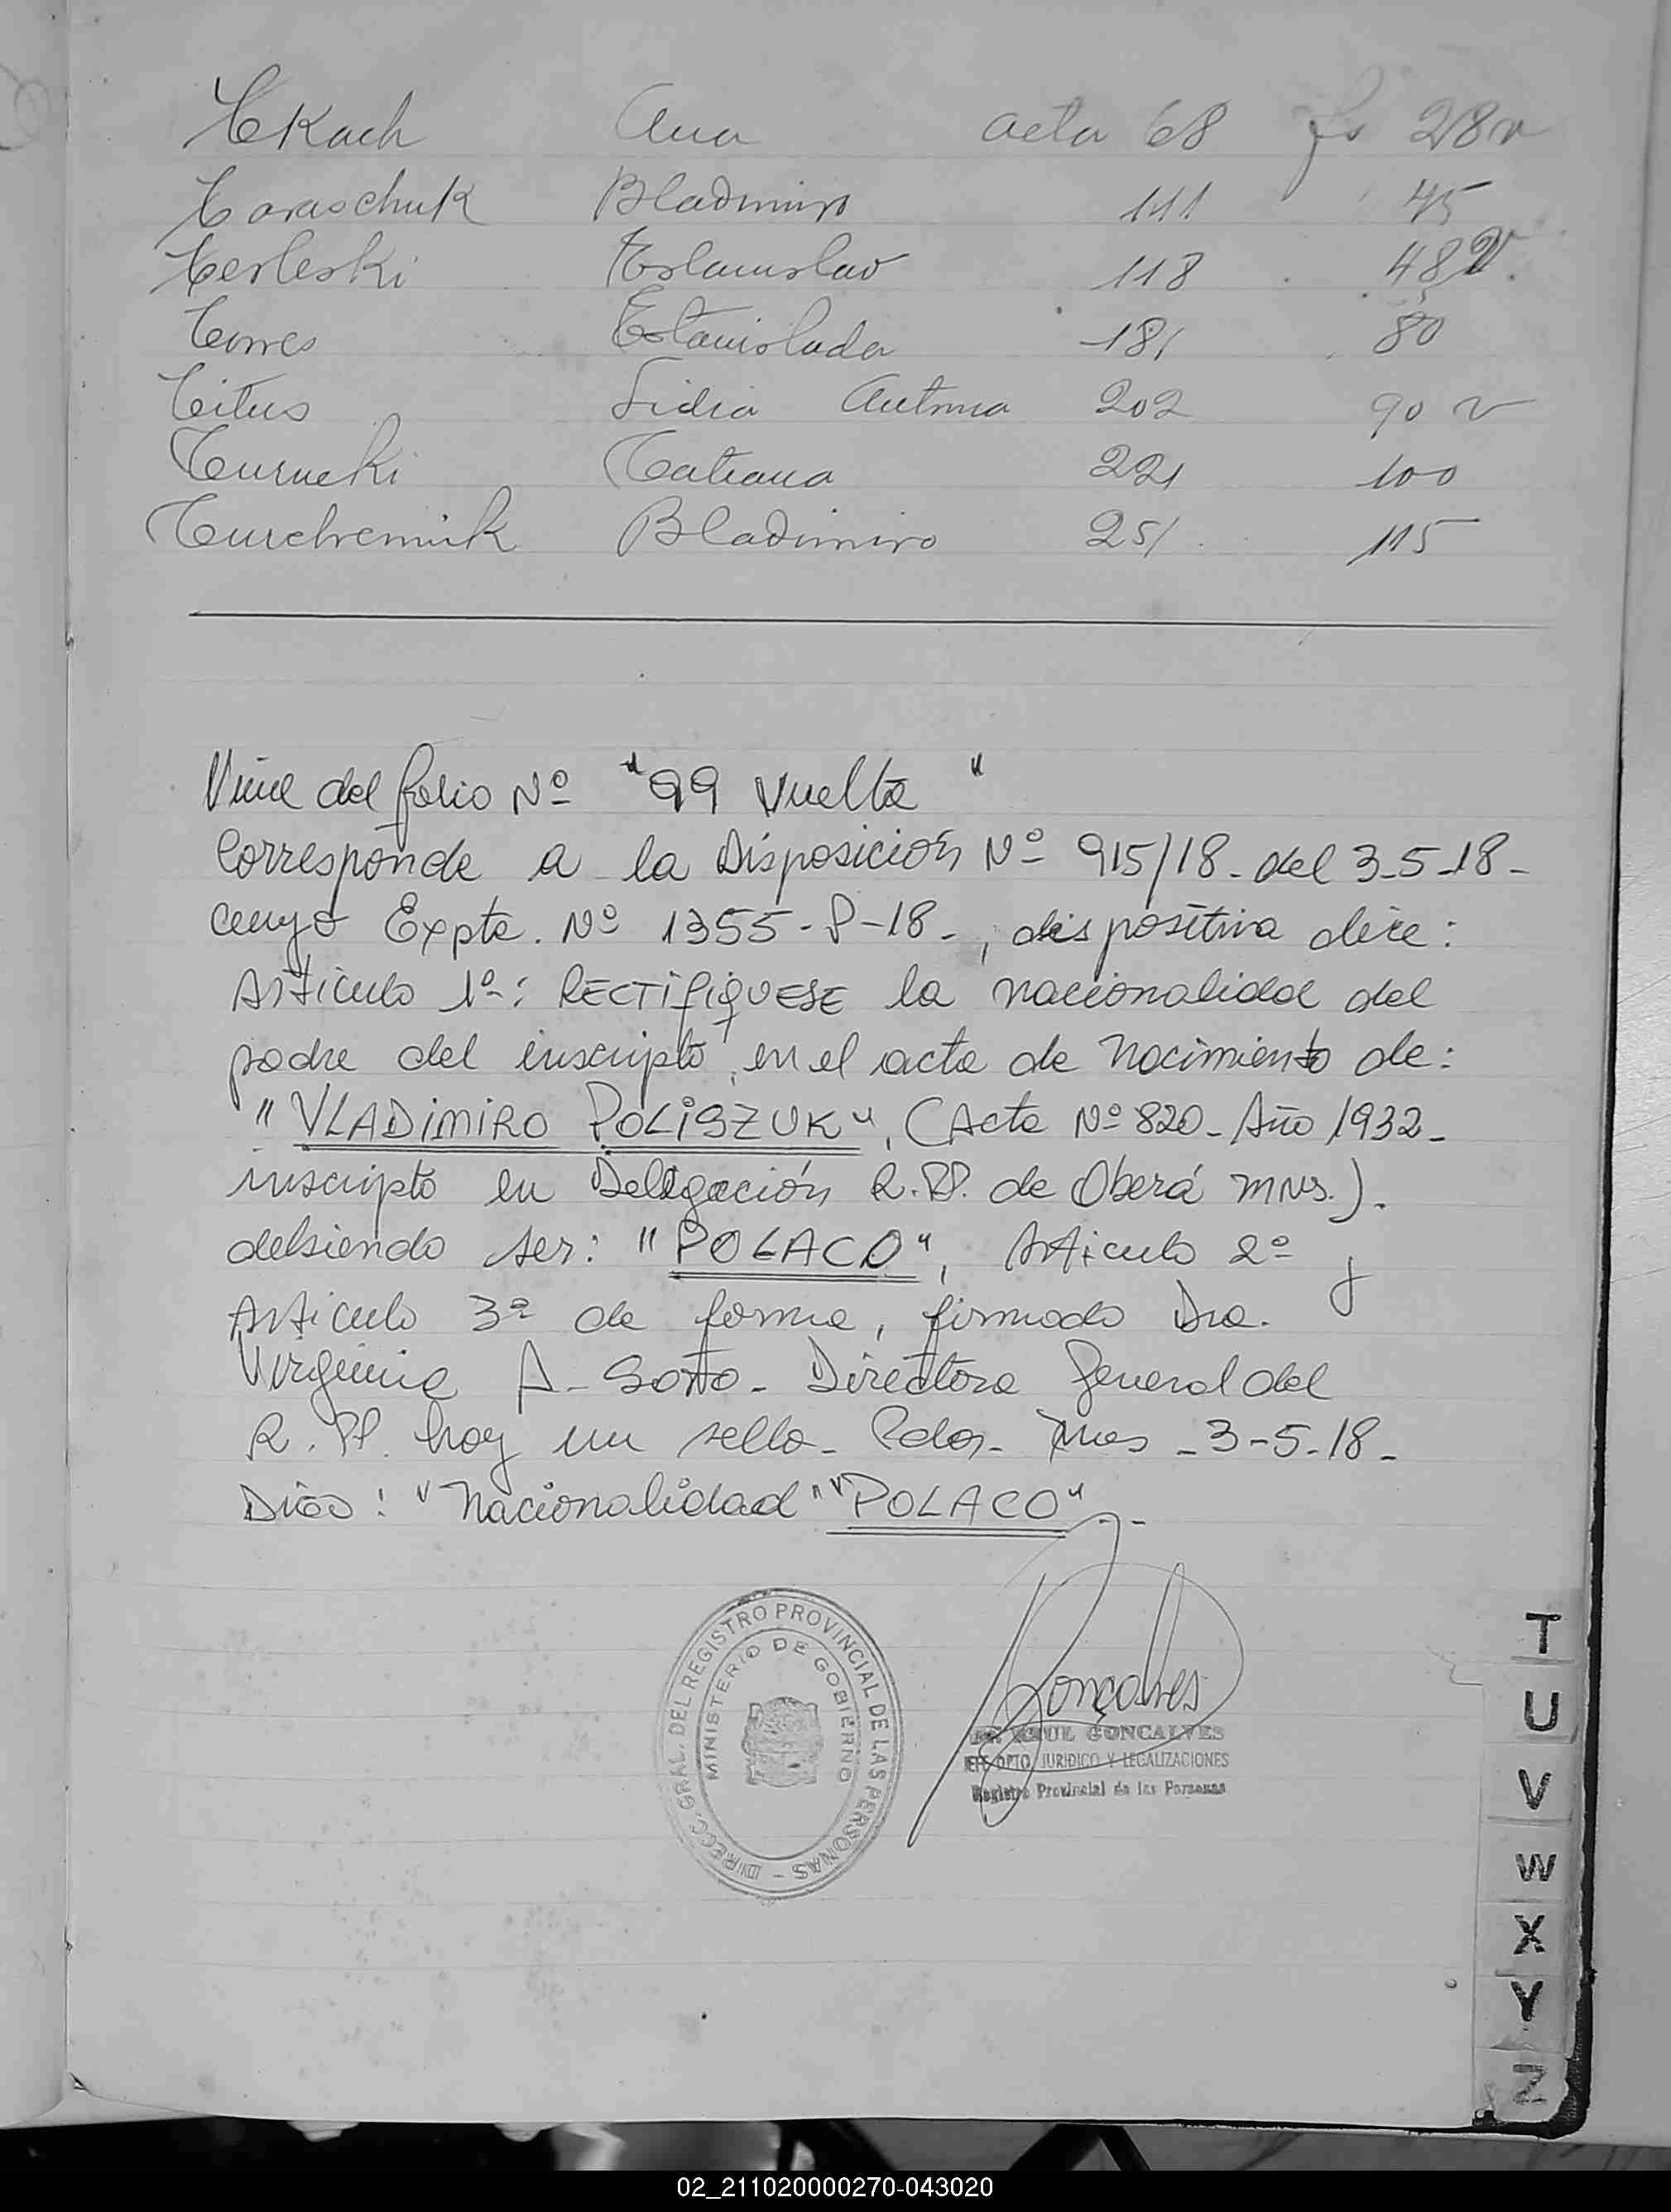 Tkach Ana acta 68 fs 28v
Taraschuk Bladimiro 111 45
Terleski Estanislao 118 48v
Torres Estanislada 181 80
Titus Lidia Antonia 202 90 v
Turneki Tatiana 221 100
Turchemink Bladimiro 251 115
Viene del folio Nº "99 Vuelta"
Corresponde a la Disposición Nº 915/18- del 3-5-18-
cuyo Expte. Nº 1355-P-18-, dispositiva dice:
Artículo 1º: RECTIFIQUESE la nacionalidad del
padre del inscripto, en el acta de Nacimiento de:
"VLADIMIRO POLISZUK", (Acta Nº 820- Año 1932-
inscripto en Delegación R.PP. de Oberá Mns.).
debiendo ser: "POLACO", Artículo 2º y
Artículo 3º de forma, firmado Dra.
Virginia A- Sotto- Directora General del
R.PP. hay un sello- Pdas- Mnes -3-5-18-
Digo: "Nacionalidad" "POLACO".-
DIRECC. GRAL. DEL REGISTRO PROVINCIAL DE LAS PERSONAS -
MINISTERIO DE GOBIERNO
Gonçalves
RAUL GONCALVES
JEFE DPTO. JURIDICO Y LEGALIZACIONES
Registro Provincial de las Personas
T
U
V
W
X
Y
Z
02_211020000270-043020